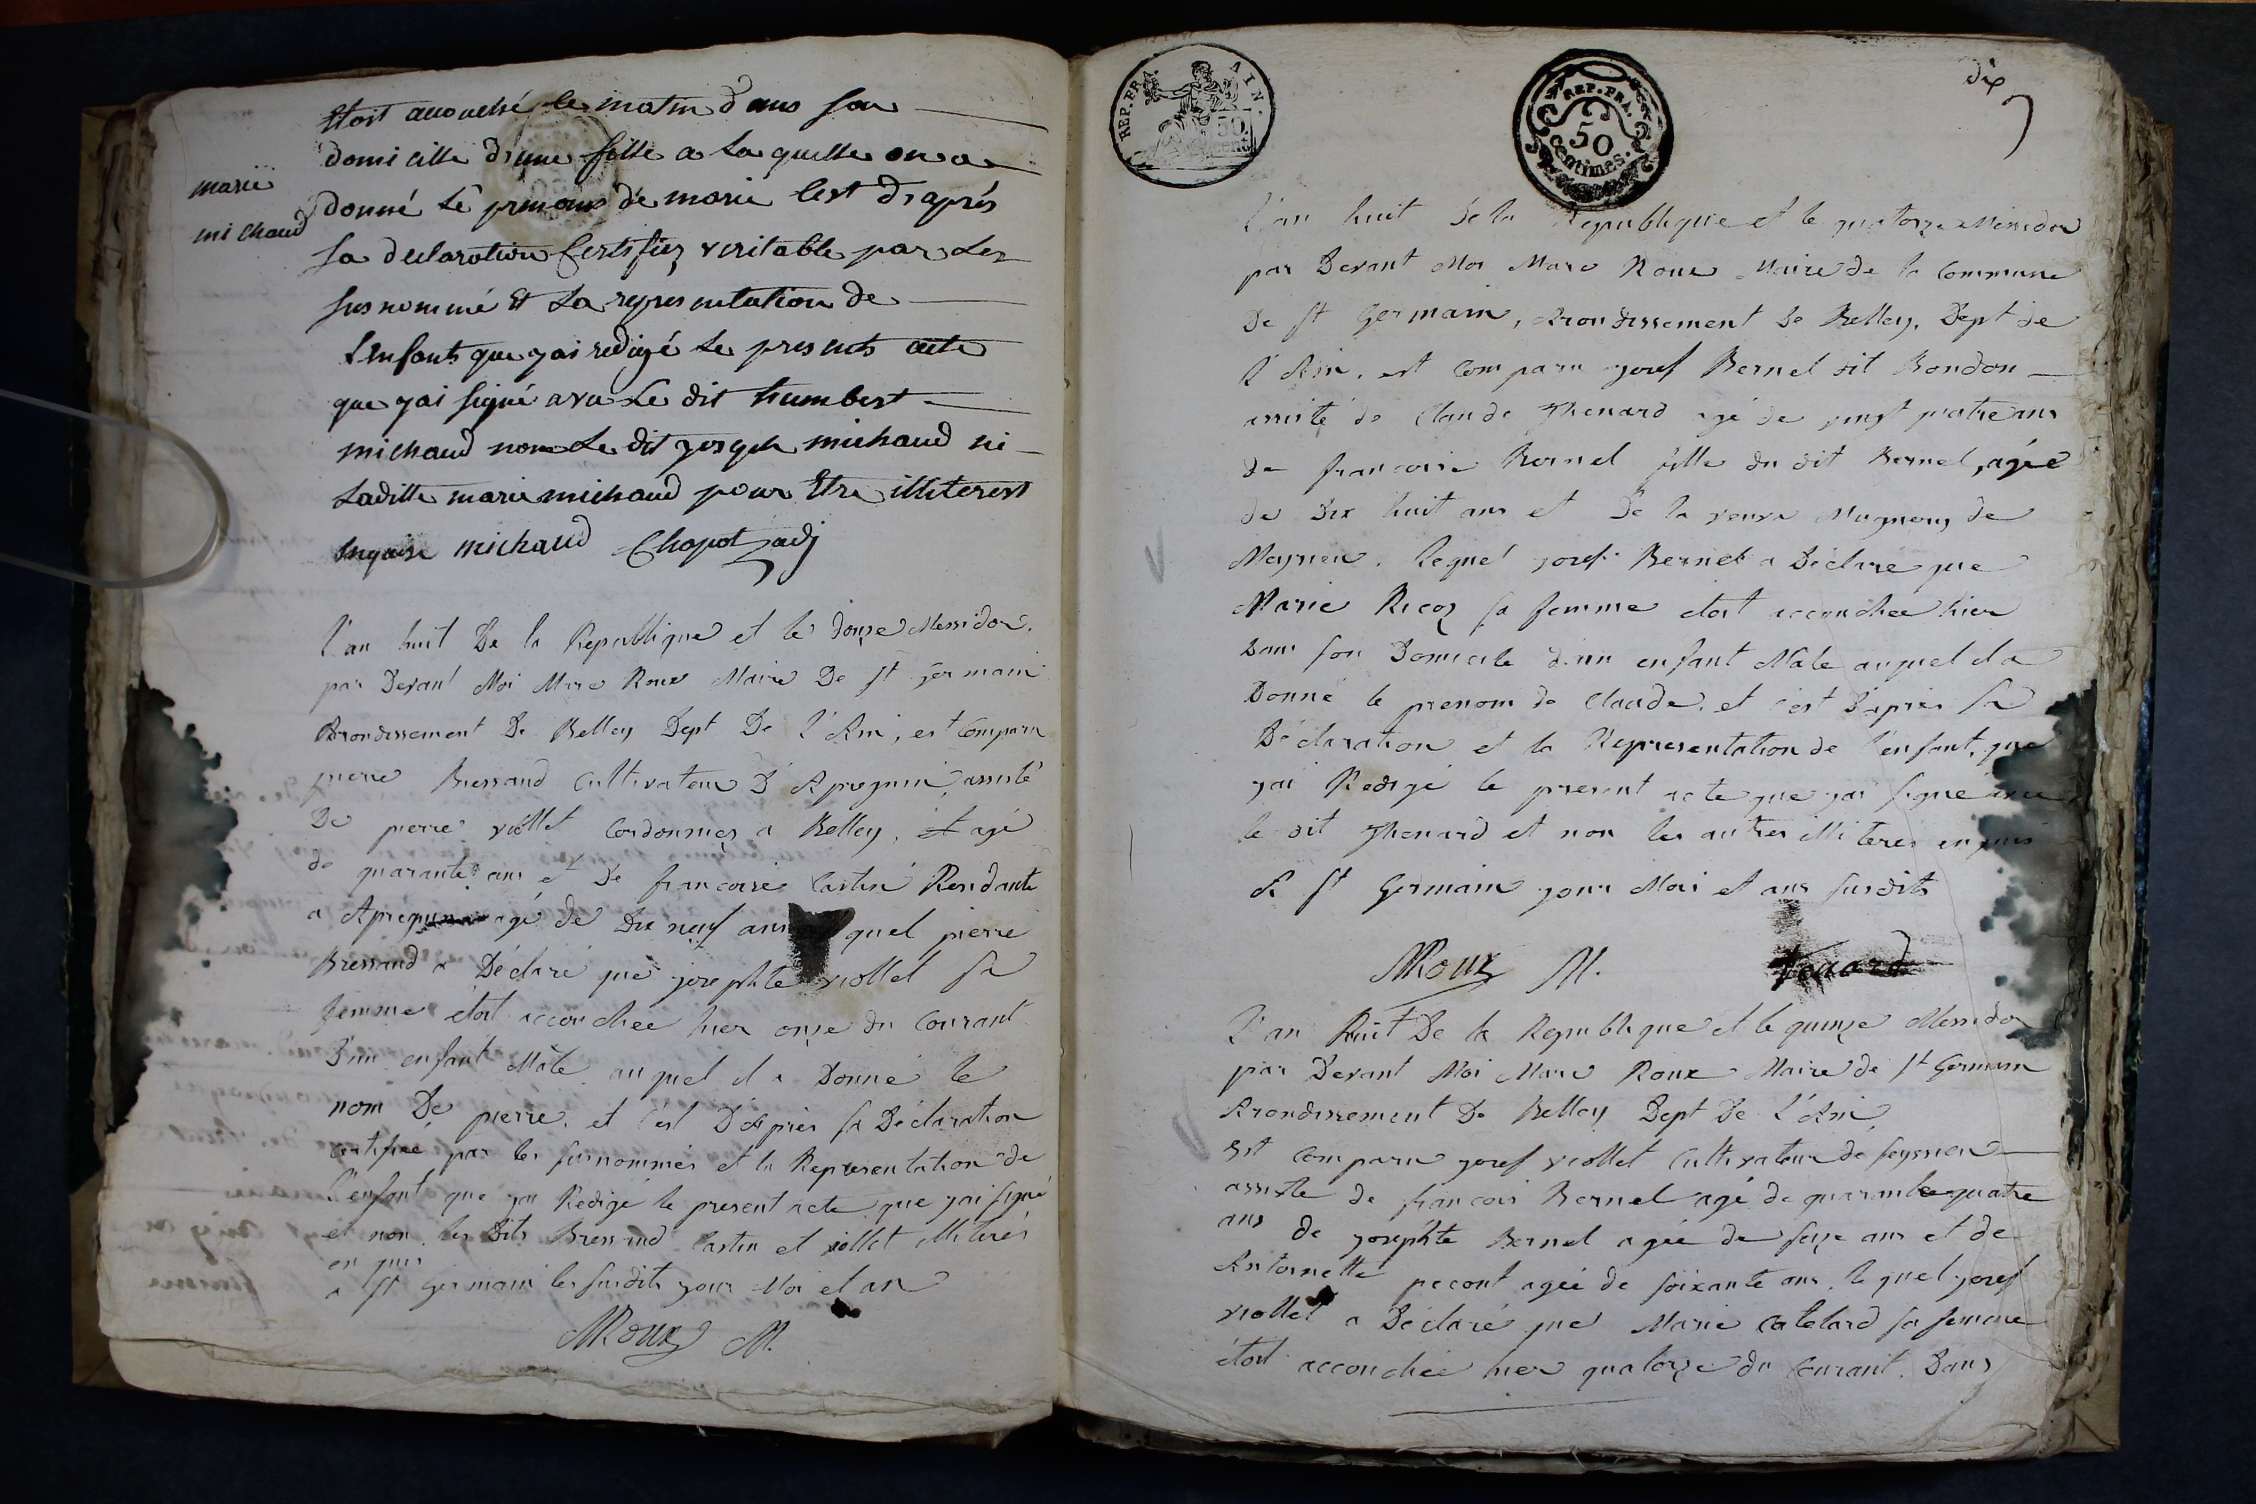 Etoit accouché le matin dans son
domicille d'une fille a la quelle on a
marie
michaud
donné le prenoms de marie C'est d'aprés
sa declaration Certifiez veritable par les
susnommé Et La representation de
L'enfants que j'ai redigé Le presents acte
que j'ai signé avec Le dit humbert
michaud non Le dit joseph michaud ni
Ladille marie michaud pour Etre illiterest
enquise michaud Chapot adj
L'an huit De la Republique et le douze Messidor
par Devant Moi Marc Roux Maire De St germain
Arrondissement De Belley Dept De l'Ain, est Comparu
pierre Bressand Cultivateur D'Apregnin assisté
De pierre viollet Cordonnier a Belley, et agé
de quarante ans et De francoise Castin Residante
a Apregnin agé de Dix neuf ans quel pierre
Bressand a Déclaré que josephte viollet sa
femme étoit accouchée hier onze du Courant
D'un enfant Mâle auquel il a Donné le
nom De pierre, et c'est D'Aprés sa Déclaration
Certifiée par les susnommés et la Representation de
l'enfant que j'ai Redigé le present acte que j'ai signé
et non les Dits Bressand Castin et viollet illiterés
enquis
a St Germain les susdits jour Moi et an
MRoux M.
REP. FRA. AIN. 50 cent
REP. FRA. 50 centimes.
dix
L'an huit de la Republique et le quatorze Messidor
par Devant Moi Marc Roux Maire de la Commune
De St Germain, Arondissement De Belley, Dept de
l'Ain, est Comparu josef Bernel dit Bondon
assisté de Claude Thenard agé de vingt quatre ans
de francoise Bernel fille du dit Bernel, agée
de Dix huit ans et De la veuve de
Meyrieu. lequel josef Bernel a Déclaré que
Marie Recoz sa femme étoit accouchée hier
Dans son Domicile d'un enfant Mâle auquel il a
Donné le prenom de Claude, et c'est D'aprés sa
Déclaration et la Representation de l'enfant, que
j'ai Redigé le present acte que j'ai signé avec
le dit Thenard et non les autres illiterés enquis
A St Germain jour Moi et ans susdits
MRoux M. Tenard
L'an huit De la Republique et le quinze Messidor
par Devant Moi Marc Roux Maire de St Germain
Arondissement De Belley Dept De l'Ain,
Est Comparu josef viollet Cultivateur de seyssieu
assisté de francois Bernel agé de quarante quatre
ans de josephte Bernel agée de seize ans et de
Antoinette pecont agée de soixante ans, lequel josef
viollet a Déclaré que Marie Catelard sa femme
étoit accouchée hier quatorze du Courant, Dans